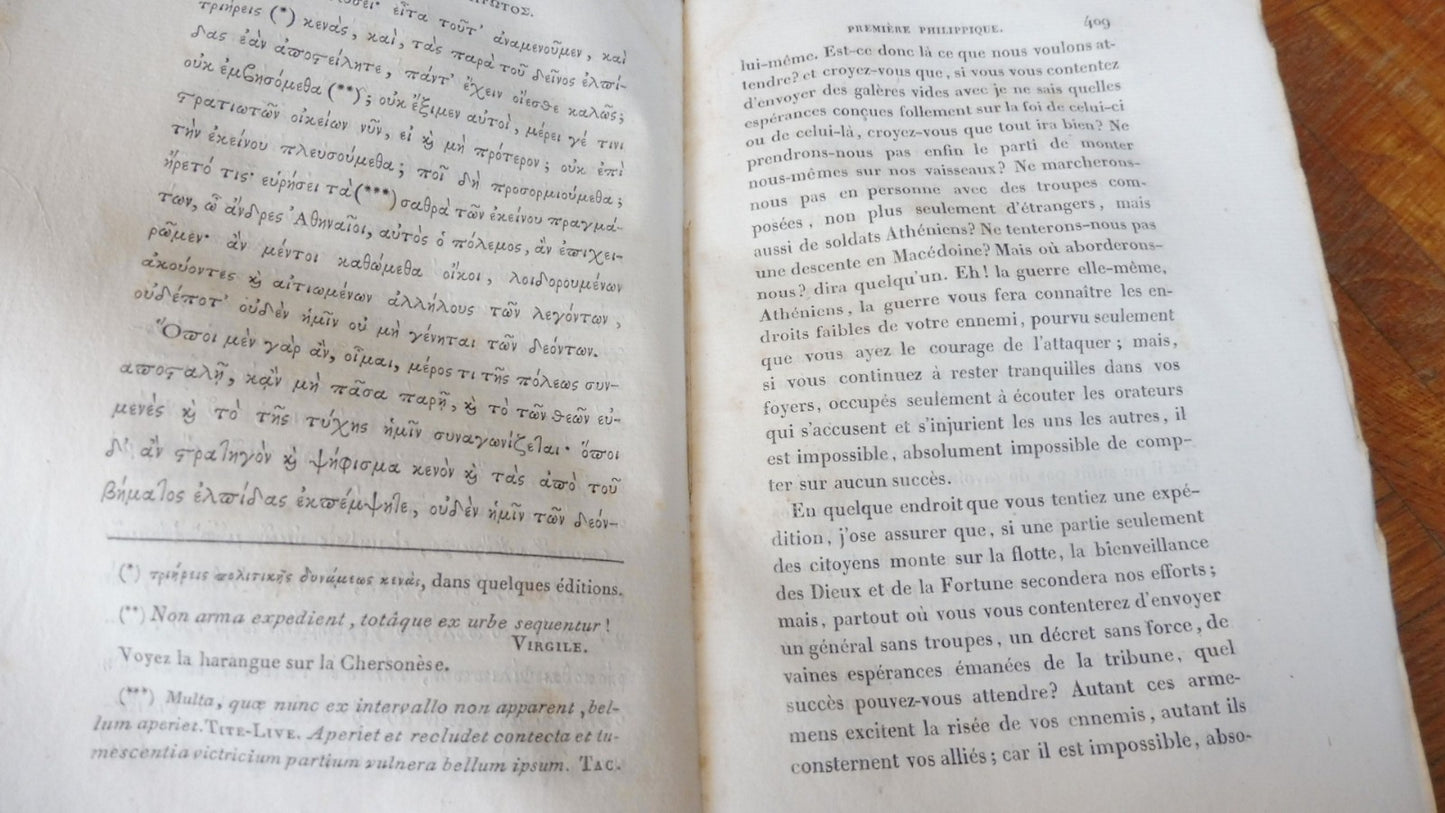 ΠΡΩΤΟΣ.
εἶτα τοῦτ' ἀναμενοῦμεν, καὶ
τριήρεις (*) κενὰς, καὶ, τὰς παρὰ τοῦ δεῖνος ἐλπί-
δας ἐὰν ἀποστείλητε, πάντ' ἔχειν οἴεσθε καλῶς;
οὐκ ἐμβησόμεθα (**); οὐκ ἔξιμεν αὐτοὶ, μέρει γέ τινι
στρατιωτῶν οἰκείων νῦν, εἰ καὶ μὴ πρότερον; οὐκ ἐπὶ
τὴν ἐκείνου πλευσούμεθα; ποῖ δὴ προσορμιούμεθα;
ἤρετό τις· εὑρήσει τὰ (***) σαθρὰ τῶν ἐκείνου πραγμά-
των, ὦ ἄνδρες Ἀθηναῖοι, αὐτὸς ὁ πόλεμος, ἂν ἐπιχει-
ρῶμεν· ἂν μέντοι καθώμεθα οἴκοι, λοιδορουμένων
ἀκούοντες καὶ αἰτιωμένων ἀλλήλους τῶν λεγόντων,
οὐδέποτ' οὐδὲν ἡμῖν οὐ μὴ γένηται τῶν δεόντων.
Ὅποι μὲν γὰρ ἂν, οἶμαι, μέρος τι τῆς πόλεως συν-
αποσταλῇ, κἂν μὴ πᾶσα παρῇ, καὶ τὸ τῶν θεῶν εὐ-
μενὲς καὶ τὸ τῆς τύχης ἡμῖν συναγωνίζεται· ὅποι
δ' ἂν στρατηγὸν καὶ ψήφισμα κενὸν καὶ τὰς ἀπὸ τοῦ
βήματος ἐλπίδας ἐκπέμψητε, οὐδὲν ἡμῖν τῶν δεόν-
(*) τριήρεις πολιτικῆς δυνάμεως κενὰς, dans quelques éditions.
(**) Non arma expedient, totâque ex urbe sequentur!
VIRGILE.
Voyez la harangue sur la Chersonèse.
(***) Multa, quæ nunc ex intervallo non apparent, bel-
lum aperiet. TITE-LIVE. Aperiet et recludet contecta et tu-
mescentia victricium partium vulnera bellum ipsum. TAC.
PREMIÈRE PHILIPPIQUE. 409
lui-même. Est-ce donc là ce que nous voulons at-
tendre? et croyez-vous que, si vous vous contentez
d'envoyer des galères vides avec je ne sais quelles
espérances conçues follement sur la foi de celui-ci
ou de celui-là, croyez-vous que tout ira bien? Ne
prendrons-nous pas enfin le parti de monter
nous-mêmes sur nos vaisseaux? Ne marcherons-
nous pas en personne avec des troupes com-
posées, non plus seulement d'étrangers, mais
aussi de soldats Athéniens? Ne tenterons-nous pas
une descente en Macédoine? Mais où aborderons-
nous? dira quelqu'un. Eh! la guerre elle-même,
Athéniens, la guerre vous fera connaître les en-
droits faibles de votre ennemi, pourvu seulement
que vous ayez le courage de l'attaquer; mais,
si vous continuez à rester tranquilles dans vos
foyers, occupés seulement à écouter les orateurs
qui s'accusent et s'injurient les uns les autres, il
est impossible, absolument impossible de comp-
ter sur aucun succès.
En quelque endroit que vous tentiez une expé-
dition, j'ose assurer que, si une partie seulement
des citoyens monte sur la flotte, la bienveillance
des Dieux et de la Fortune secondera nos efforts;
mais, partout où vous vous contenterez d'envoyer
un général sans troupes, un décret sans force, de
vaines espérances émanées de la tribune, quel
succès pouvez-vous attendre? Autant ces arme-
mens excitent la risée de vos ennemis, autant ils
consternent vos alliés; car il est impossible, abso-